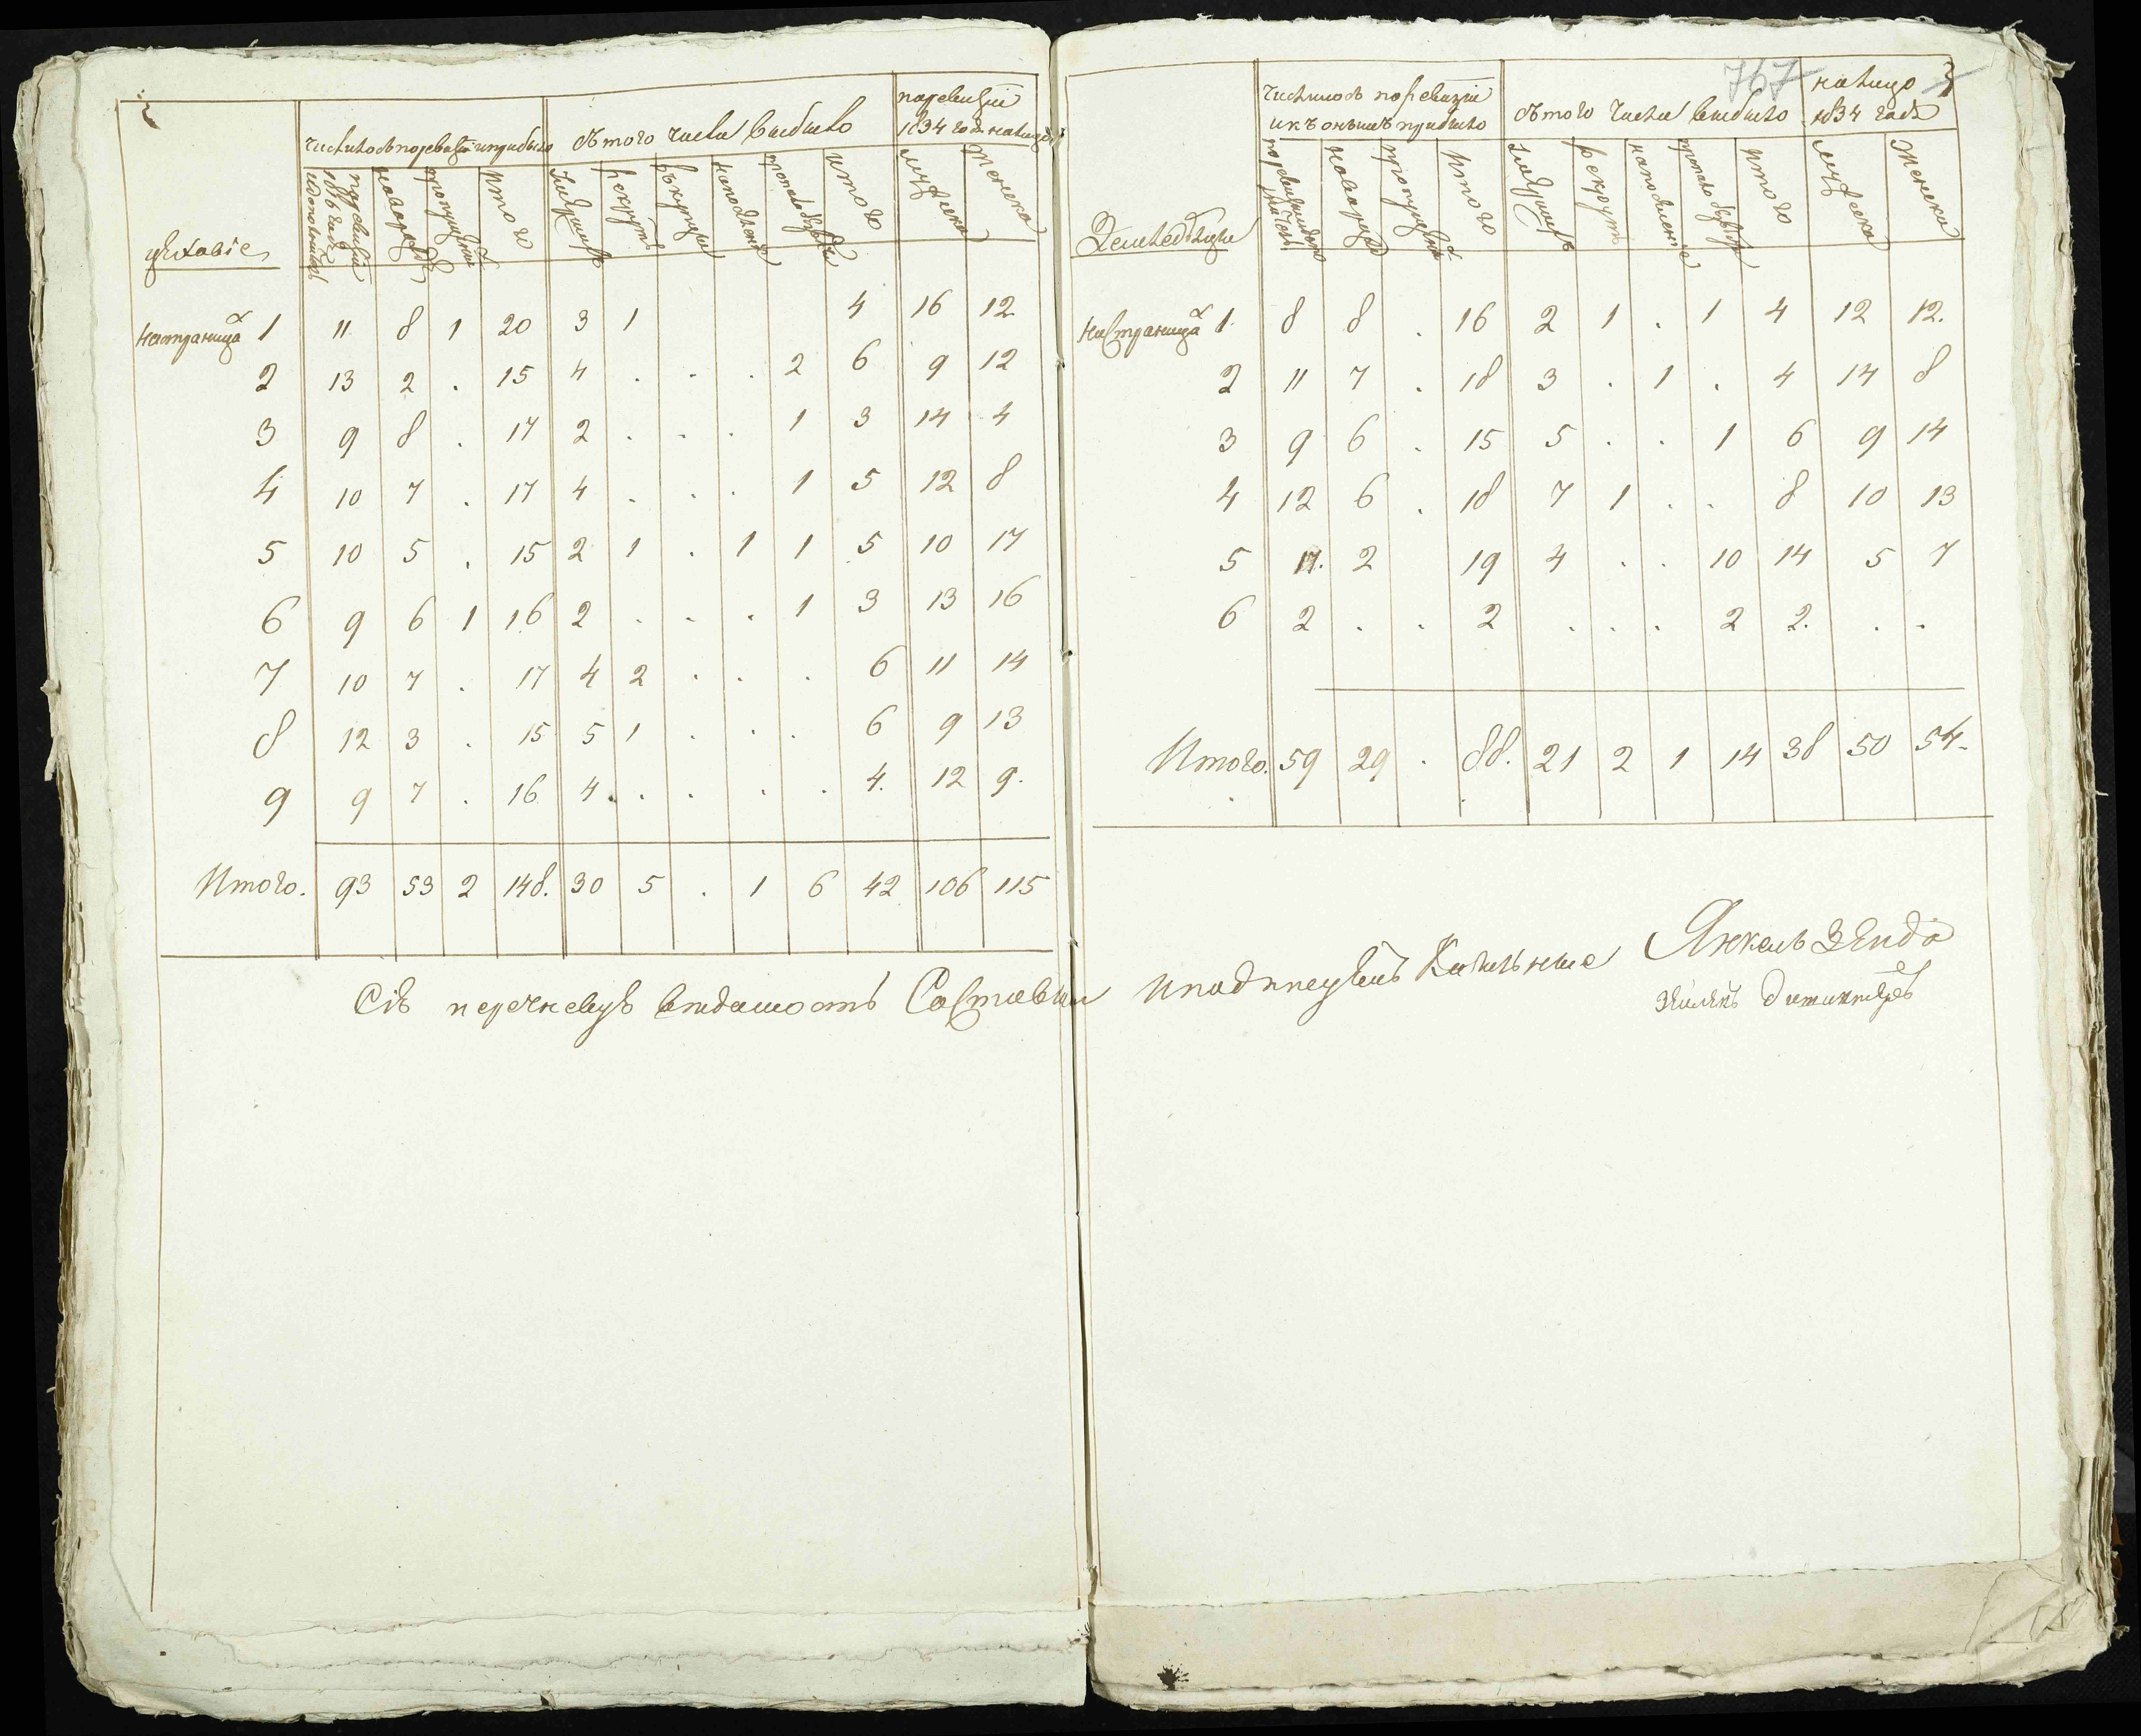 767 3
цеховіе
числилось по ревизіи и прибыло
съ того числа выбыло
по ревизіи
1834 года налицо
по ревизіи 1816 года
новорожд
пропущени
итого
умершихъ
рекрутъ
итого
мужеска
женска
на страницах 1 11 8 1 20 3 1 4 16 12
2 13 2 . 15 4 . . . 2 6 9 12
3 9 8 . 17 2 . . . 1 3 14 4
4 10 7 . 17 4 . . . 1 5 12 8
5 10 5 . 15 2 1 . 1 1 5 10 17
6 9 6 1 16 2 . . . 1 3 13 16
7 10 7 . 17 4 2 . . . 6 11 14
8 12 3 . 15 5 1 . . . 6 9 13
9 9 7 . 16 4 . . . . 4. 12 9.
Итого. 93 53 2 148. 30 5 . 1 6 42 106 115
Сіѣ перечневую вѣдомость Составили
Земледѣльцы
числилось по ревизіи
и къ онымъ прибыло
съ того числа выбыло
налицо
1834 года
итого
умершихъ
рекрутъ
итого
мужеска
женска
на Страницах 1. 8 8 . 16 2 1 . 1 4 12 12.
2 11 7 . 18 3 . 1 . 4 14 8
3 9 6 . 15 5 . . 1 6 9 14
4 12 6 . 18 7 1 . . 8 10 13
5 17. 2 19 4 . . 10 14 5 7
6 2 . . 2 . . . 2 2. . .
Итого. 59 29 . 88. 21 2 1 14 38 50 54.
Янкель Зейда